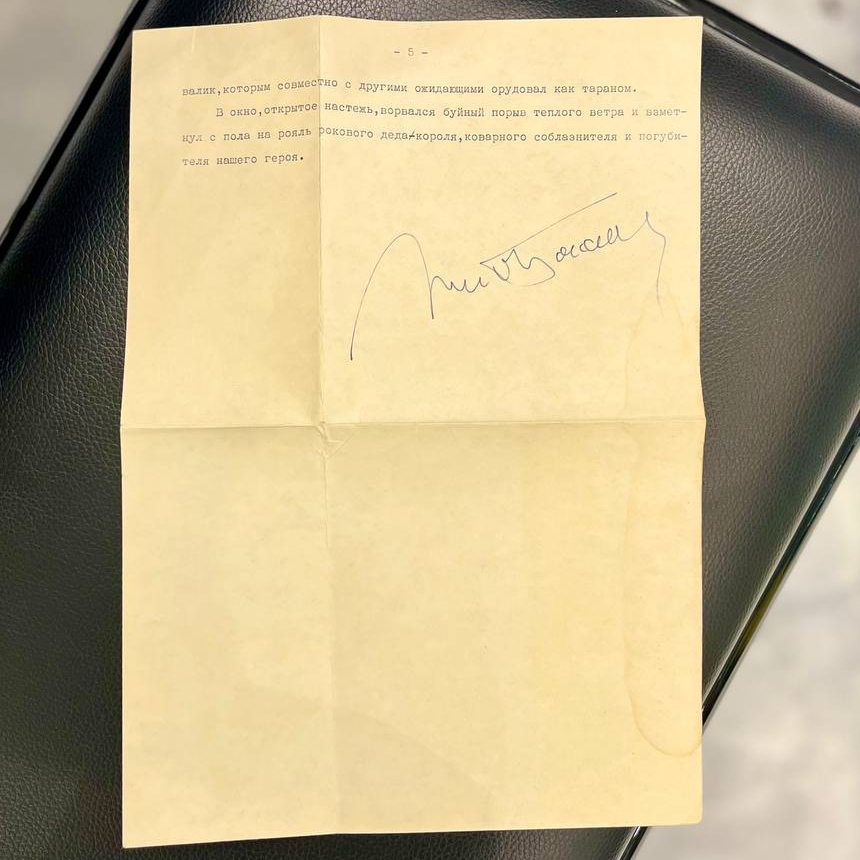 - 5 -
валик,которым совместно с другими ожидающими орудовал как тараном.
В окно,открытое настежь,ворвался буйный порыв теплого ветра и взмет-
нул с пола на рояль рокового деда-короля,коварного соблазнителя и погуби-
теля нашего героя.